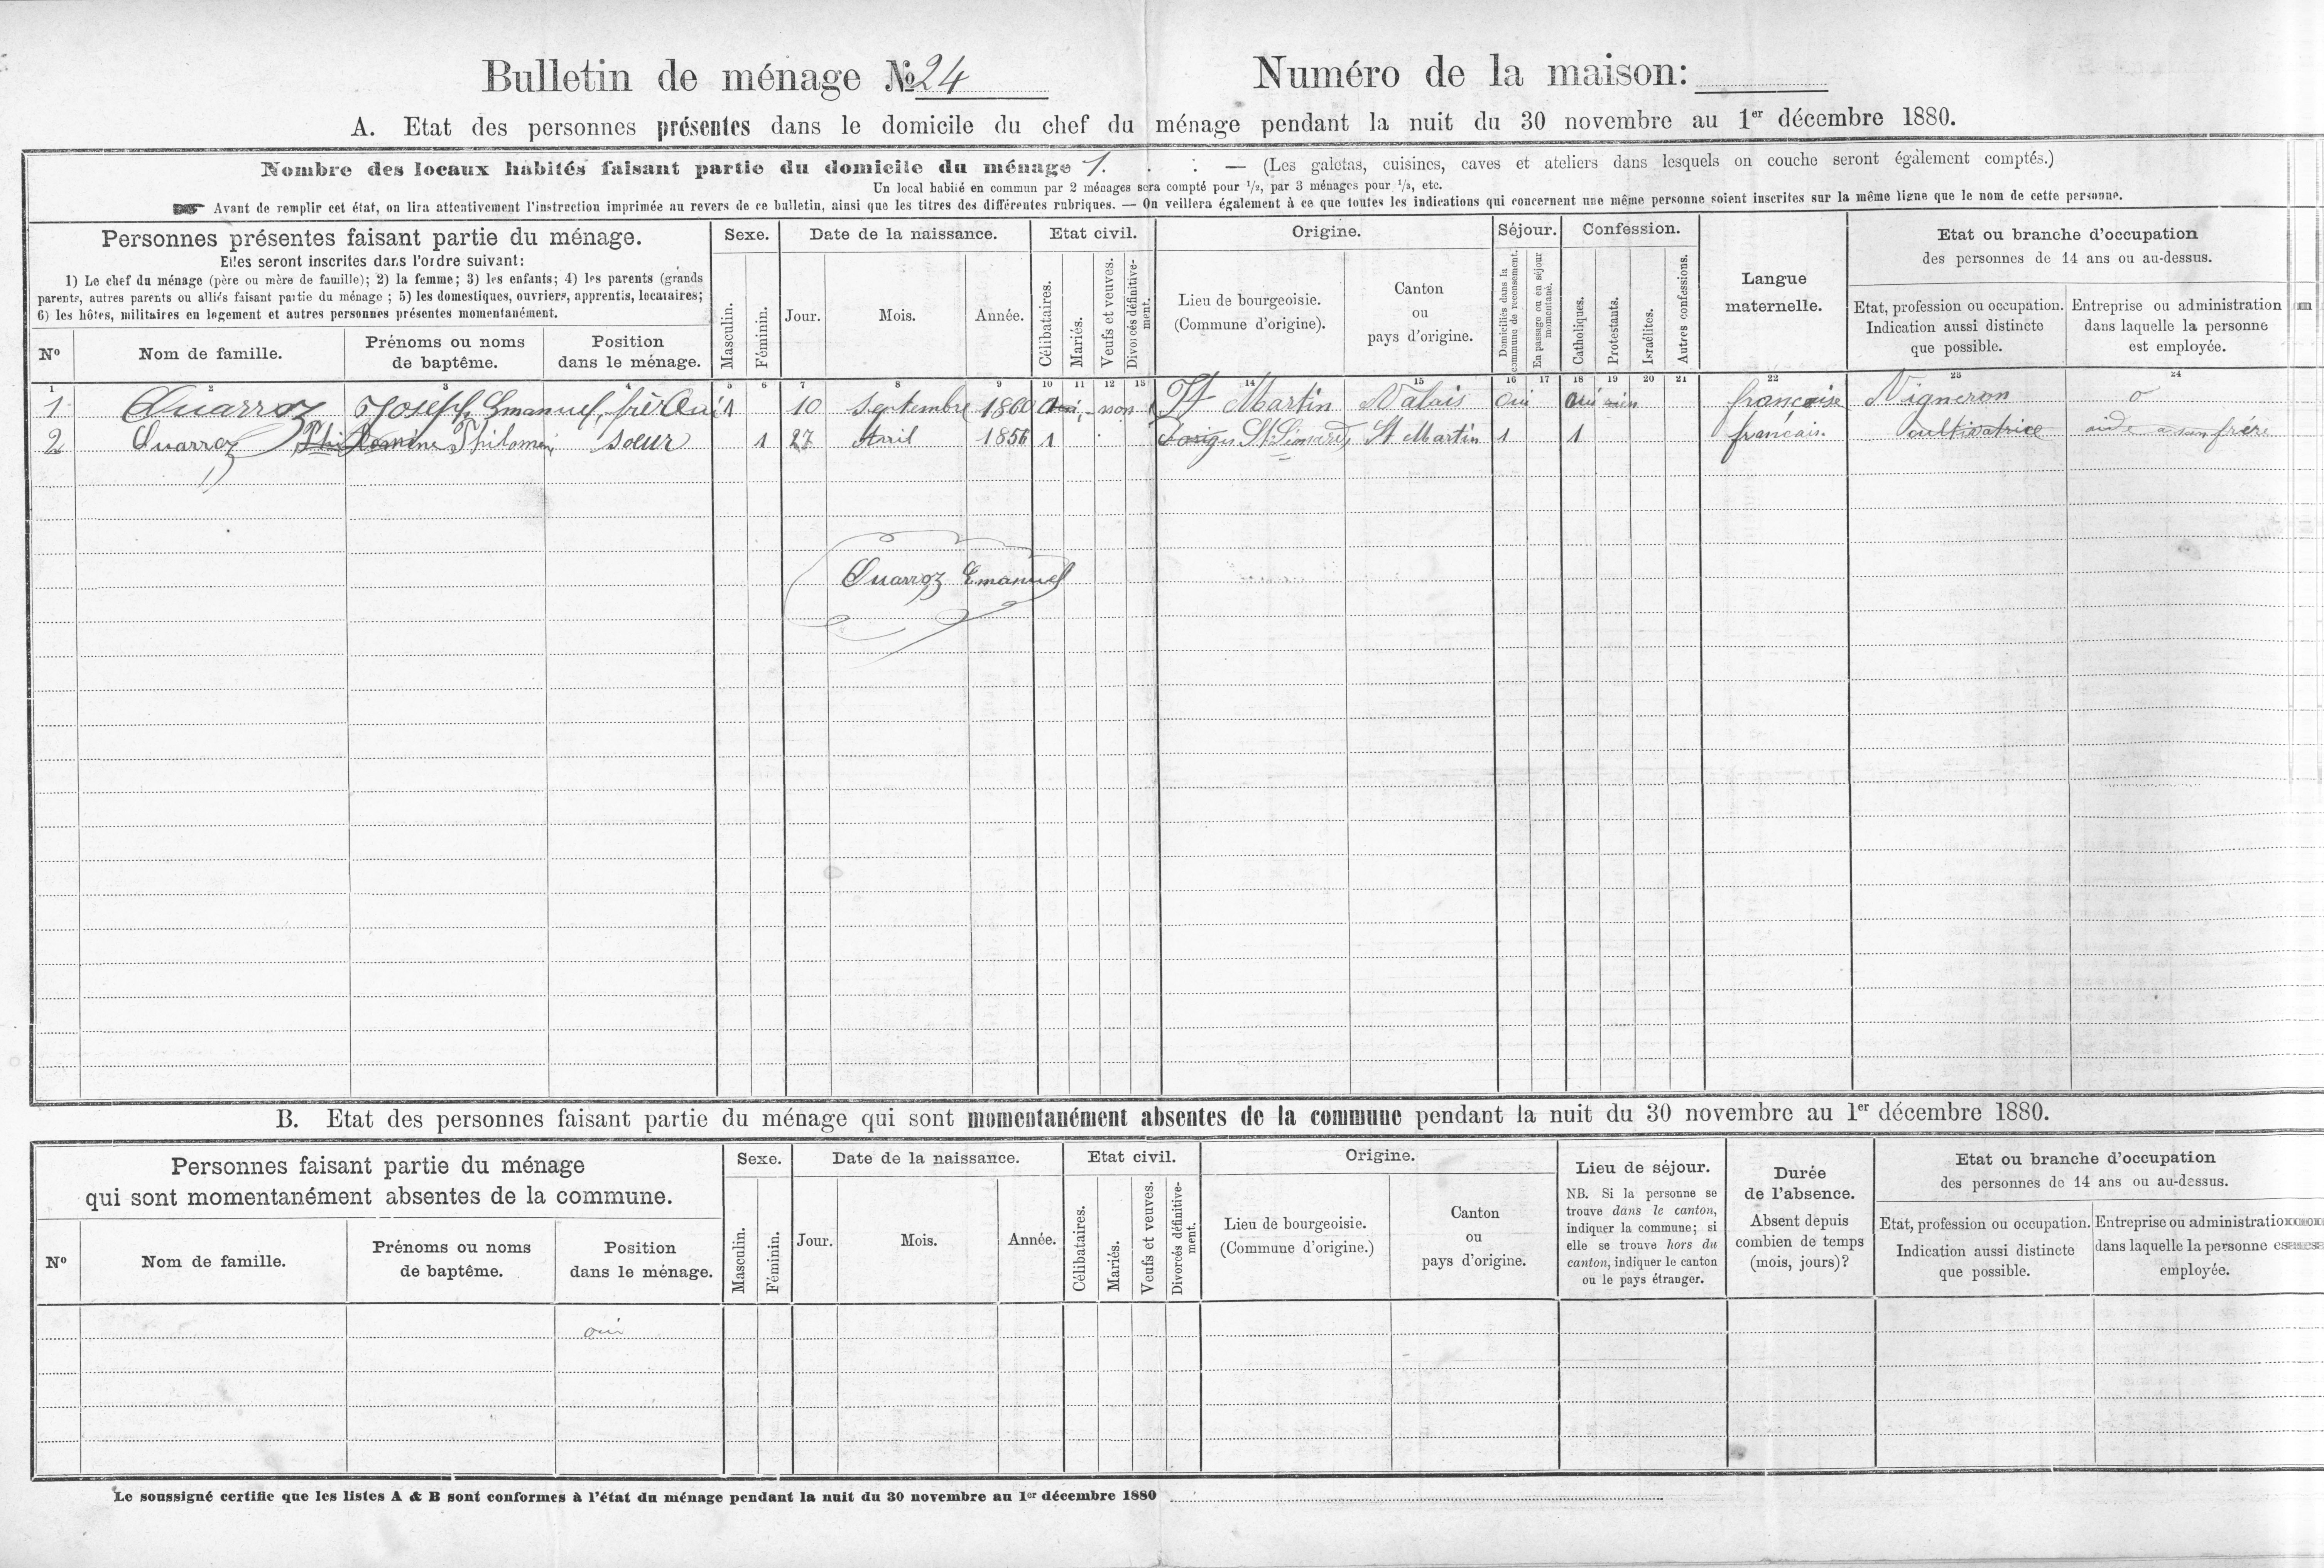 Bulletin de ménage № 24
Numéro de la maison:
A. Etat des personnes présentes dans le domicile du chef du ménage pendant la nuit du 30 novembre au 1er décembre 1880.
Nombre des locaux habités faisant partie du domicile du ménage 1. . : — (Les galetas, cuisines, caves et ateliers dans lesquels on couche seront également comptés.)
Un local habité en commun par 2 ménages sera compté pour 1/2, par 3 ménages pour 1/3, etc.
☛ Avant de remplir cet état, on lira attentivement l'instruction imprimée au revers de ce bulletin, ainsi que les titres des différentes rubriques. — On veillera également à ce que toutes les indications qui concernent une même personne soient inscrites sur la même ligne que le nom de cette personne.
Personnes présentes faisant partie du ménage.
Elles seront inscrites dans l'ordre suivant:
1) Le chef du ménage (père ou mère de famille); 2) la femme; 3) les enfants; 4) les parents (grands
parents, autres parents ou alliés faisant partie du ménage ; 5) les domestiques, ouvriers, apprentis, locataires;
6) les hôtes, militaires en logement et autres personnes présentes momentanément.
Nº
Nom de famille.
Prénoms ou noms
de baptême.
Position
dans le ménage.
Sexe.
Masculin.
Féminin.
Date de la naissance.
Jour.
Mois.
Année.
Etat civil.
Célibataires.
Mariés.
Veufs et veuves.
Divorcés définitive-
ment.
Origine.
Lieu de bourgeoisie.
(Commune d'origine).
Canton
ou
pays d'origine.
Séjour.
Domiciliés dans la
commune de recensement.
En passage ou en séjour
momentané.
Confession.
Catholiques.
Protestants.
Israélites.
Autres confessions.
Langue
maternelle.
Etat ou branche d'occupation
des personnes de 14 ans ou au-dessus.
Etat, profession ou occupation.
Indication aussi distincte
que possible.
Entreprise ou administration
dans laquelle la personne
est employée.
1 2 3 4 5 6 7 8 9 10 11 12 13 14 15 16 17 18 19 20 21 22 23 24
1 Quarroz Joseph Emanuel, frèr Oui 1 10 Septembre 1860 non St Martin Valais Oui Oui française Vigneron o
2 Quarroz Philomine Philomen soeur 1 27 Avril 1856 1 St Léonard St Martin 1 1 français. cultivatrice aide a son frère
Quarroz Emanuel
B. Etat des personnes faisant partie du ménage qui sont momentanément absentes de la commune pendant la nuit du 30 novembre au 1er décembre 1880.
Personnes faisant partie du ménage
qui sont momentanément absentes de la commune.
Nº
Nom de famille.
Prénoms ou noms
de baptême.
Position
dans le ménage.
Sexe.
Masculin.
Féminin.
Date de la naissance.
Jour.
Mois.
Année.
Etat civil.
Célibataires.
Mariés.
Veufs et veuves.
Divorcés définitive-
ment.
Origine.
Lieu de bourgeoisie.
(Commune d'origine.)
Canton
ou
pays d'origine.
Lieu de séjour.
NB. Si la personne se
trouve dans le canton,
indiquer la commune; si
elle se trouve hors du
canton, indiquer le canton
ou le pays étranger.
Durée
de l'absence.
Absent depuis
combien de temps
(mois, jours)?
Etat ou branche d'occupation
des personnes de 14 ans ou au-dessus.
Etat, profession ou occupation.
Indication aussi distincte
que possible.
Entreprise ou administration
dans laquelle la personne est
employée.
oui
Le soussigné certifie que les listes A & B sont conformes à l'état du ménage pendant la nuit du 30 novembre au 1er décembre 1880